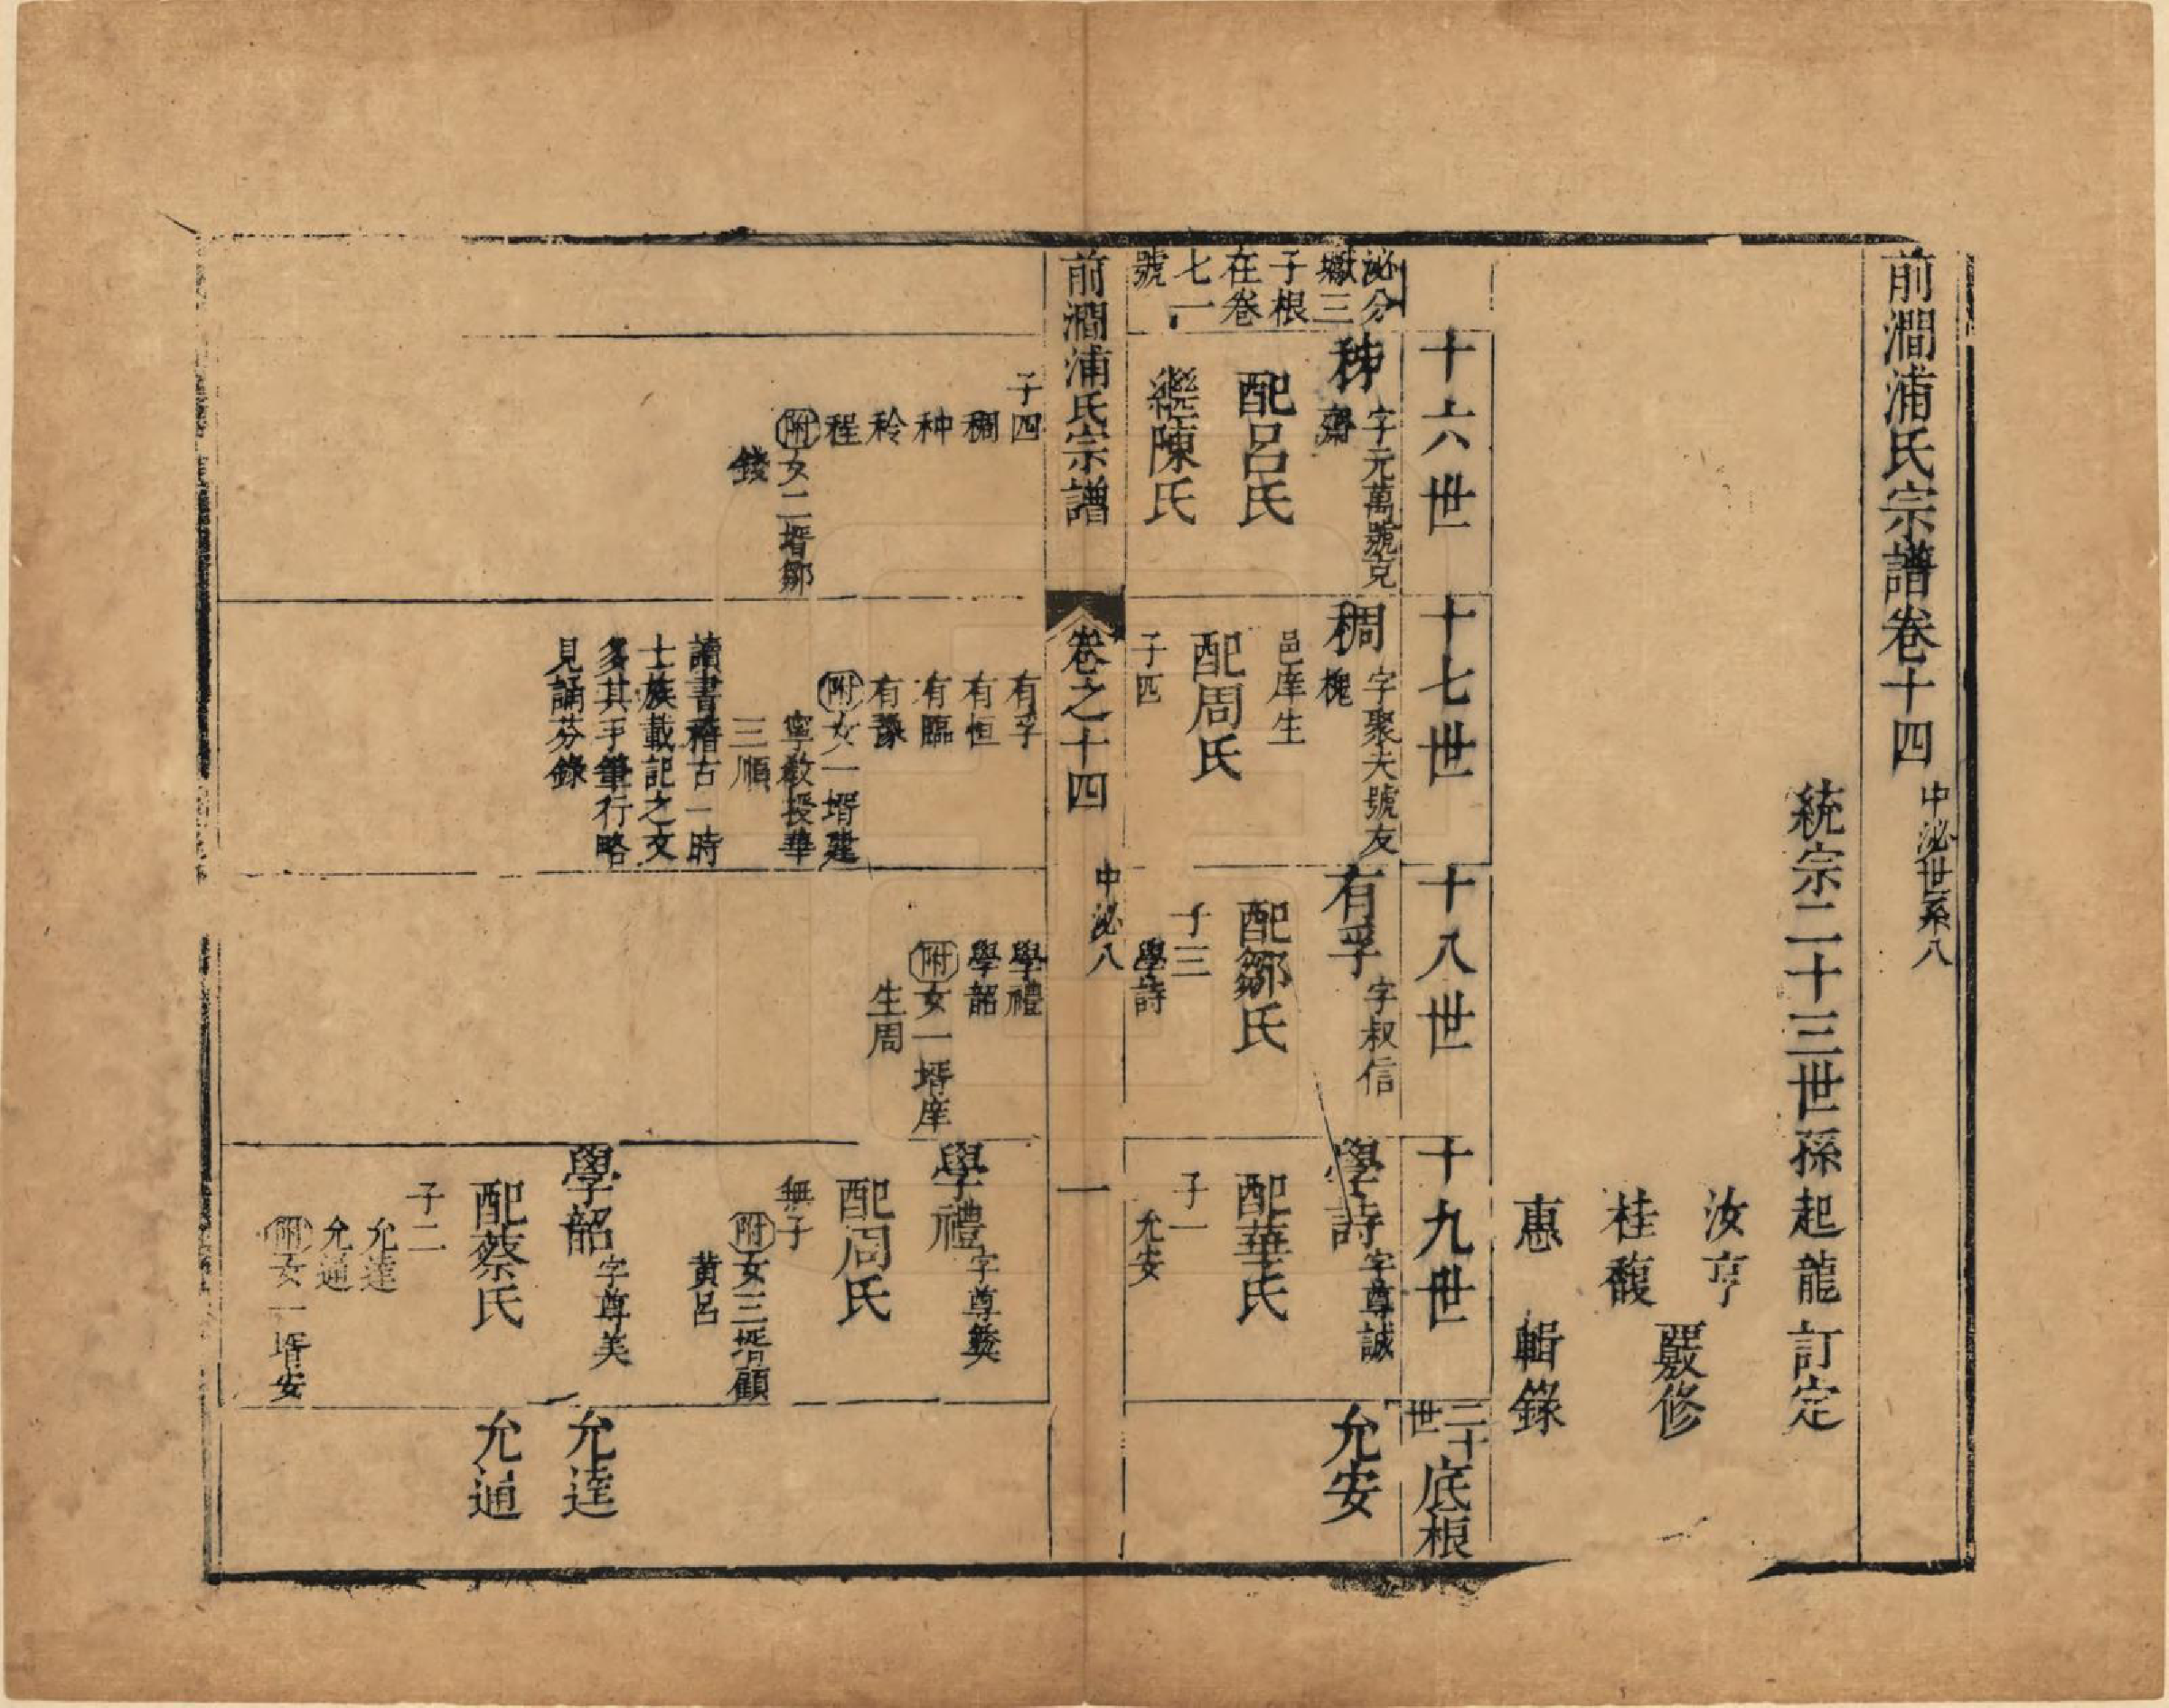 前澗浦氏宗譜卷十四
中泌世系八
統宗二十三世孫起龍訂定
汝亨
桂馥
覈修
惠 輯錄
十六世
十七世
十八世
十九世
二十世
底根
泌分
嶽三
子根
在卷
七一
號
字元萬號克
齋
配呂氏
繼陳氏
稠
字聚夫號友
槐
邑庠生
配周氏
子四
有孚
字叔信
配鄒氏
子三
學詩
學詩
字尊誠
配華氏
子一
允安
允安
前澗浦氏宗譜
卷之十四
中泌八
一
子四
稠
种
秢
程
附女二壻鄒
錢
有孚
有恒
有臨
有豫
附女一壻建
寧教授華
三順
讀書稽古一時
士族載記之文
多其手筆行略
見誦芬錄
學禮
學韶
附女一壻庠
生周
學禮
字尊彝
配周氏
無子
附女三壻顧
黄呂
學韶
字尊美
配蔡氏
子二
允達
允通
附女一壻安
允達
允通